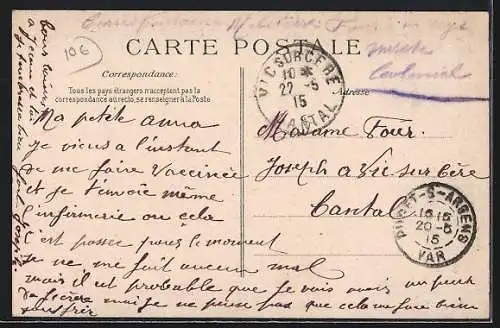 Correspondance Militaire
CARTE POSTALE
106
Correspondance:
Tous les pays étrangers n'acceptent pas la
correspondance au recto, se renseigner à la Poste
Adresse
VIC SUR CERE
10 *
22 -5
15
CANTAL
Ma petite anna
je viens a l'instant
de me faire Vaccinée
et je t'envoie même
l'infirmerie ou cela
est passer pour le moment
je ne me fait aucun mal
mais il est probable que je vais avoir un peut
de fièvre mais je ne pense pas que cela me fasse bien
Madame Four
Joseph a Vic sur Cère
Cantal
PUGET-S-ARGENS
16 15
20 -5
15
VAR
bons baisers
a Jeanne et